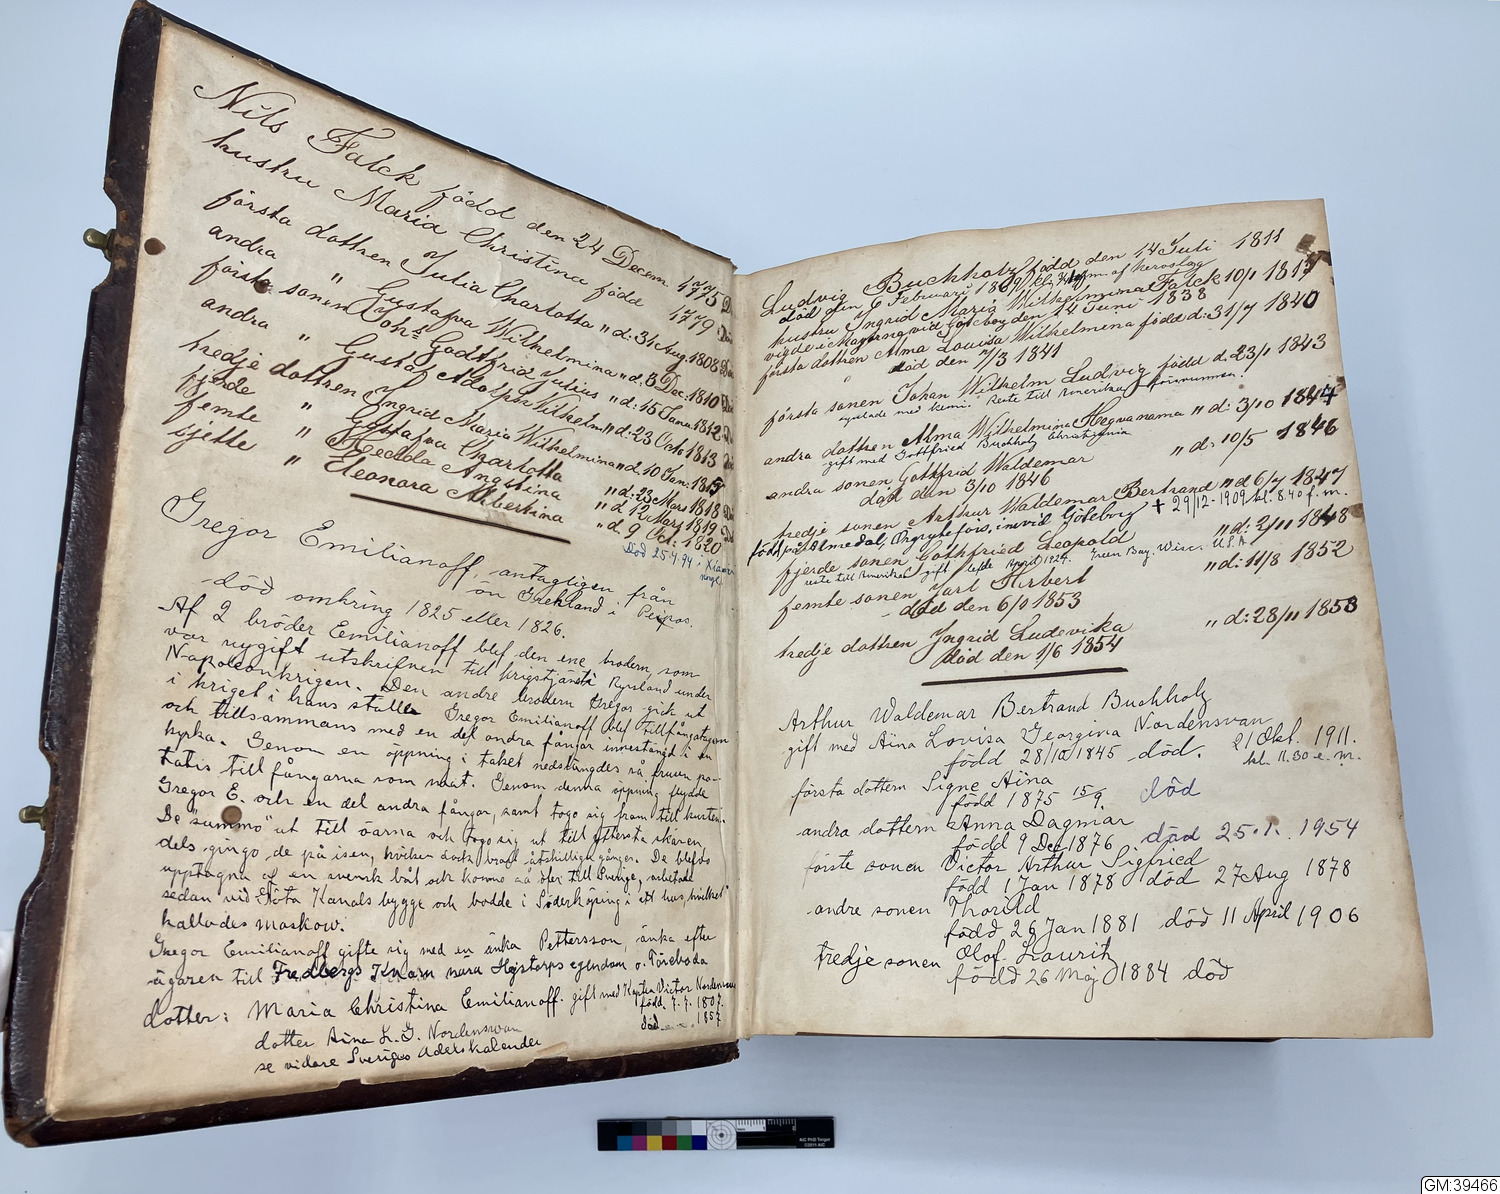 Nils Falck född den 24 Decem 1775
hustru Maria Christina född 1779
första dottren Julia Charlotta " d: 31 Aug. 1808
andra " Gustafva Wilhelmina " d: 3 Dec. 1810
förste sonen Joh: Godtfrid Julius " d: 15 Janu. 1812
andra " Gustaf Adolph Wilhelm " d: 23 Octo 1813
tredje dottren Ingrid Maria Wilhelmina " d. 10 Jan. 1815
fjerde " Gustafva Charlotta " d: 23 Mars 1818
femte " Hedda Angstina " d 12 Mars 1819
sjette " Eleonora Albertina " d. 9 Oct: 1820
Död 25.4.94 i
Gregor Emilianoff, antagligen från
ön Grekland i Peipos.
död omkring 1825 eller 1826.
Af 2 bröder Eemilianoff blef den ene brodern, som
var nygift utskrifven till krigstjänst i Ryssland under
Napoleonkrigen. Den andre brodern Gregor gick ut
i kriget i hans ställe Gregor Emilianoff blef tillfångatagen
och tillsammans med en del andra fångar innestängd i en
kyrka. Genom en öppning i taket nedslungdes rå fruen po-
tatis till fångarna som mat. Genom denna öppning flydde
Gregor E. och en del andra fångar, samt togo sig fram till kusten.
De "summo" ut till öarna och togo sig ut till yttersta skären
dels gingo de på isen, hvilken dock brast åtskilliga gånger. De blefvo
upptagna af en svensk båt och kommo så öfver till Sverige, arbetade
sedan vid Göta Kanals bygge och bodde i Söderköping i ett hus, hvilket
kallades Maskow.
Gregor Emilianoff gifte sig med en änka Pettersson, änka efter
ägaren till Fredbergs Kvarn nära Hajstorps egendom o. Töreboda
dotter: Maria Christina Emilianoff. gift med Kapten Victor Nordensvan
född. 7.7. 1807.
död 1857
dotter Aina L. G. Nordensvan
se vidare Sveriges Adelskalender
Ludvig Buchholz född den 14 Juli 1811
död den 6 Februari 18
hustru Ingrid Maria Wilhelmina Falck 10/1 1815
vigde i Göteborg den 14 Juni 1838
första dottren Alma Louisa Wilhelmina född d: 31/7 1840
" död den 7/3 1841
första sonen Johan Wilhelm Ludvig född d. 23/1 1843
sysslade med kemi. Reste till Amerika
andra dottren Alma Wilhelmina Hegvanama " d: 3/10 1844
gift med Gottfried Buchholz Christiania
andra sonen Gottfrid Waldemar " d: 10/5 1846
död den 3/10 1846
tredje sonen Arthur Waldemar Bertrand " d 6/7 1847
född på Almedal, Örgryte förs. invid Göteborg † 29/12-1909 kl. 8.40 f.m.
fjerde sonen Gottfried Leopold " d: 2/11 1848
reste till Amerika gift lefde April 1924. Green Bay. Wisc. U.S.A.
femte sonen Karl Herbert " d: 11/8 1852
död den 6/1 1853
tredje dottren Ingrid Ludevika " d: 28/11 1853
död den 1/6 1854
Arthur Waldemar Bertrand Buchholz
gift med Aina Lovisa Georgina Nordensvan
född 28/10 1845 död. 21 Okt. 1911.
kl. 11.30 e.m.
första dottern Signe Aina
född 1875 15/9. död
andra dottern Anna Dagmar
född 9 Dec 1876 död 25.1. 1954
förste sonen Victor Arthur Sigfried
född 1 Jan 1878 död 27 Aug 1878
andre sonen Thorild
född 26 Jan 1881 död 11 April 1906
tredje sonen Olof Lauritz
född 26 Maj 1884 död
GM:39466